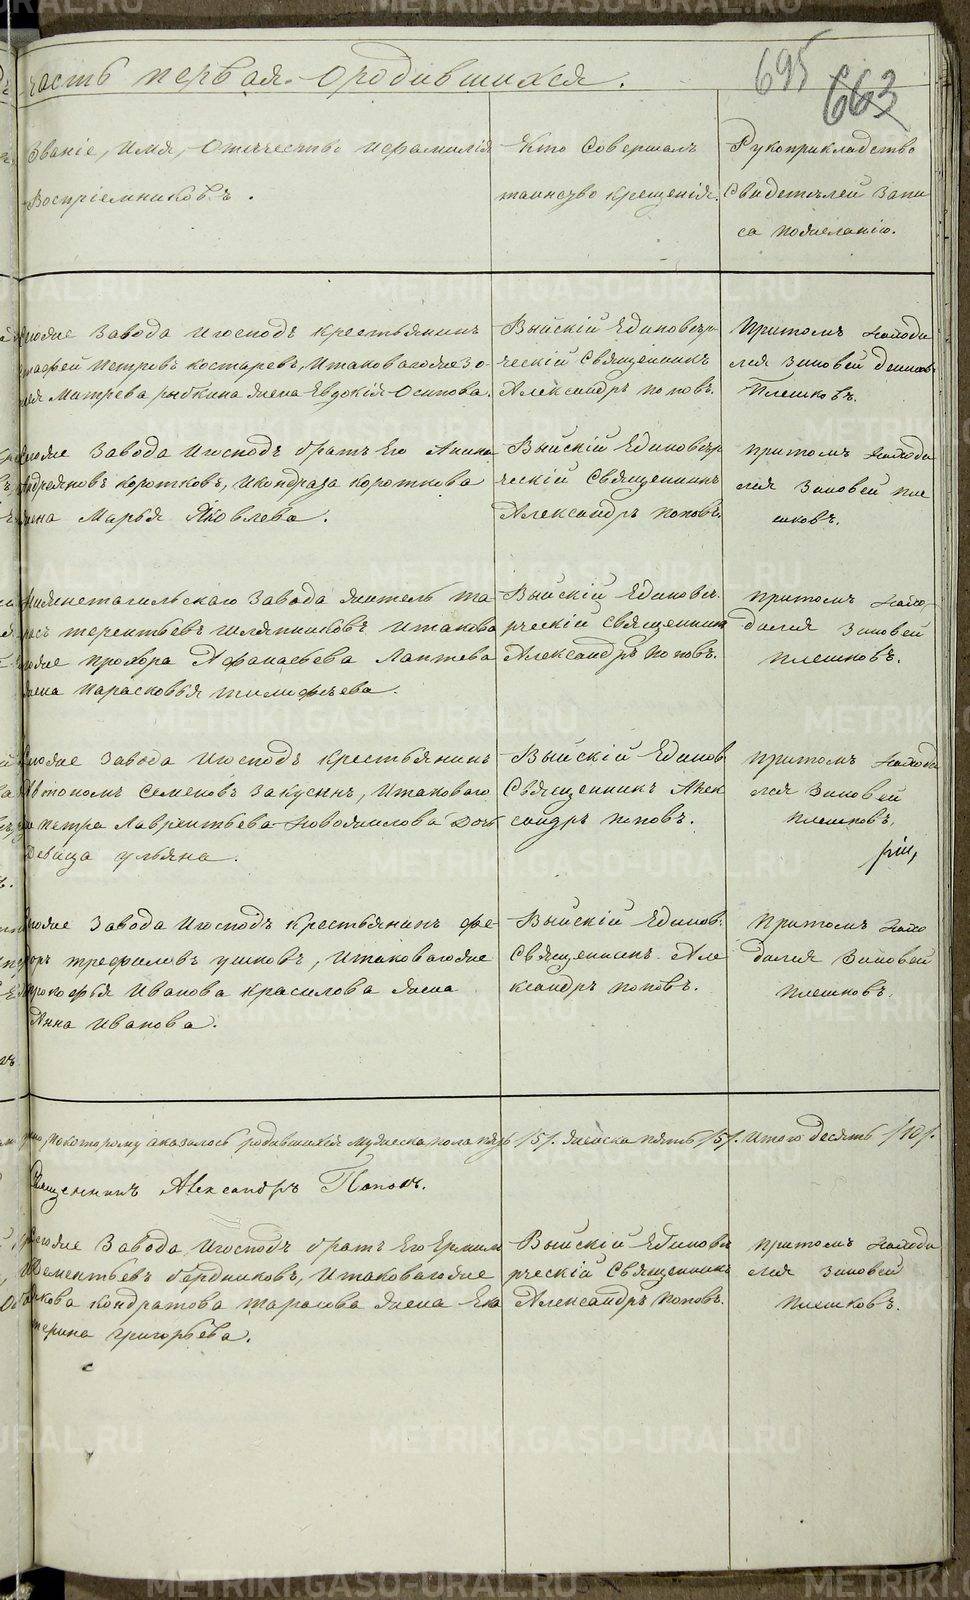 часть первая о родившихся.
695
663
Званіе, имя, Отечество и фамилія
Воспріемниковъ.
Кто Совершалъ
таинство крещенія.
Рукоприкладство
Свидетелей запи
са пожеланію.
Завода и господъ крестьянинъ
Петровъ костаревъ, и такова гоже За
Митрева рыбкина жена Евдокія Осипова.
Выйскій Единовер
ческій Священникъ
Александръ поповъ.
Притомъ находи
лся Зиновей
Плешковъ.
Завода и господъ братъ Его
коротковъ, и кондраза короткова
жена Марья Яковлева.
Выйскій Единовер
ческій Священникъ
Александръ поповъ.
притомъ находи
лся Зиновей пле
шковъ.
Нижнетагильскаго Завода житель та
расъ терентьевъ шляпниковъ и такова
гоже прохора Афанасьева Лаптева
жена парасковья тимофеева.
Выйскій Единове
рческій священникъ
Александръ поповъ.
притомъ нахо
дился Зиновей
плешковъ.
Завода и господъ крестьянинъ
Автономъ Семеновъ Закусинъ, и таковаго
же петра Лаврентьева Новожилова дочь
Девица ульяна.
Выйскій Единов
Священникъ Алек
сандръ поповъ.
притомъ находи
лся Зиновей
плешковъ.
Завода и господъ крестьянинъ фе
доръ трефиловъ ушковъ, и таковагоже
прокофья Иванова красилова жена
Анна иванова.
Выйскій Единов.
Священникъ Але
ксандръ поповъ.
притомъ нахо
дился Зиновей
плешковъ.
покоторому оказалось родившихся мужеска пола пять /5/. женска пять /5/. итого десять /10/.
Священникъ Александръ Поповъ.
Завода и господъ братъ Его Ермилъ
Дементьевъ бердниковъ, и таковагоже
кондратова тарасова жена Ека
терина григорьева.
Выйскій Единове
рческій Священникъ
Александръ поповъ.
притомъ находи
лся Зиновей
плешковъ.
METRIKI.GASO-URAL.RU